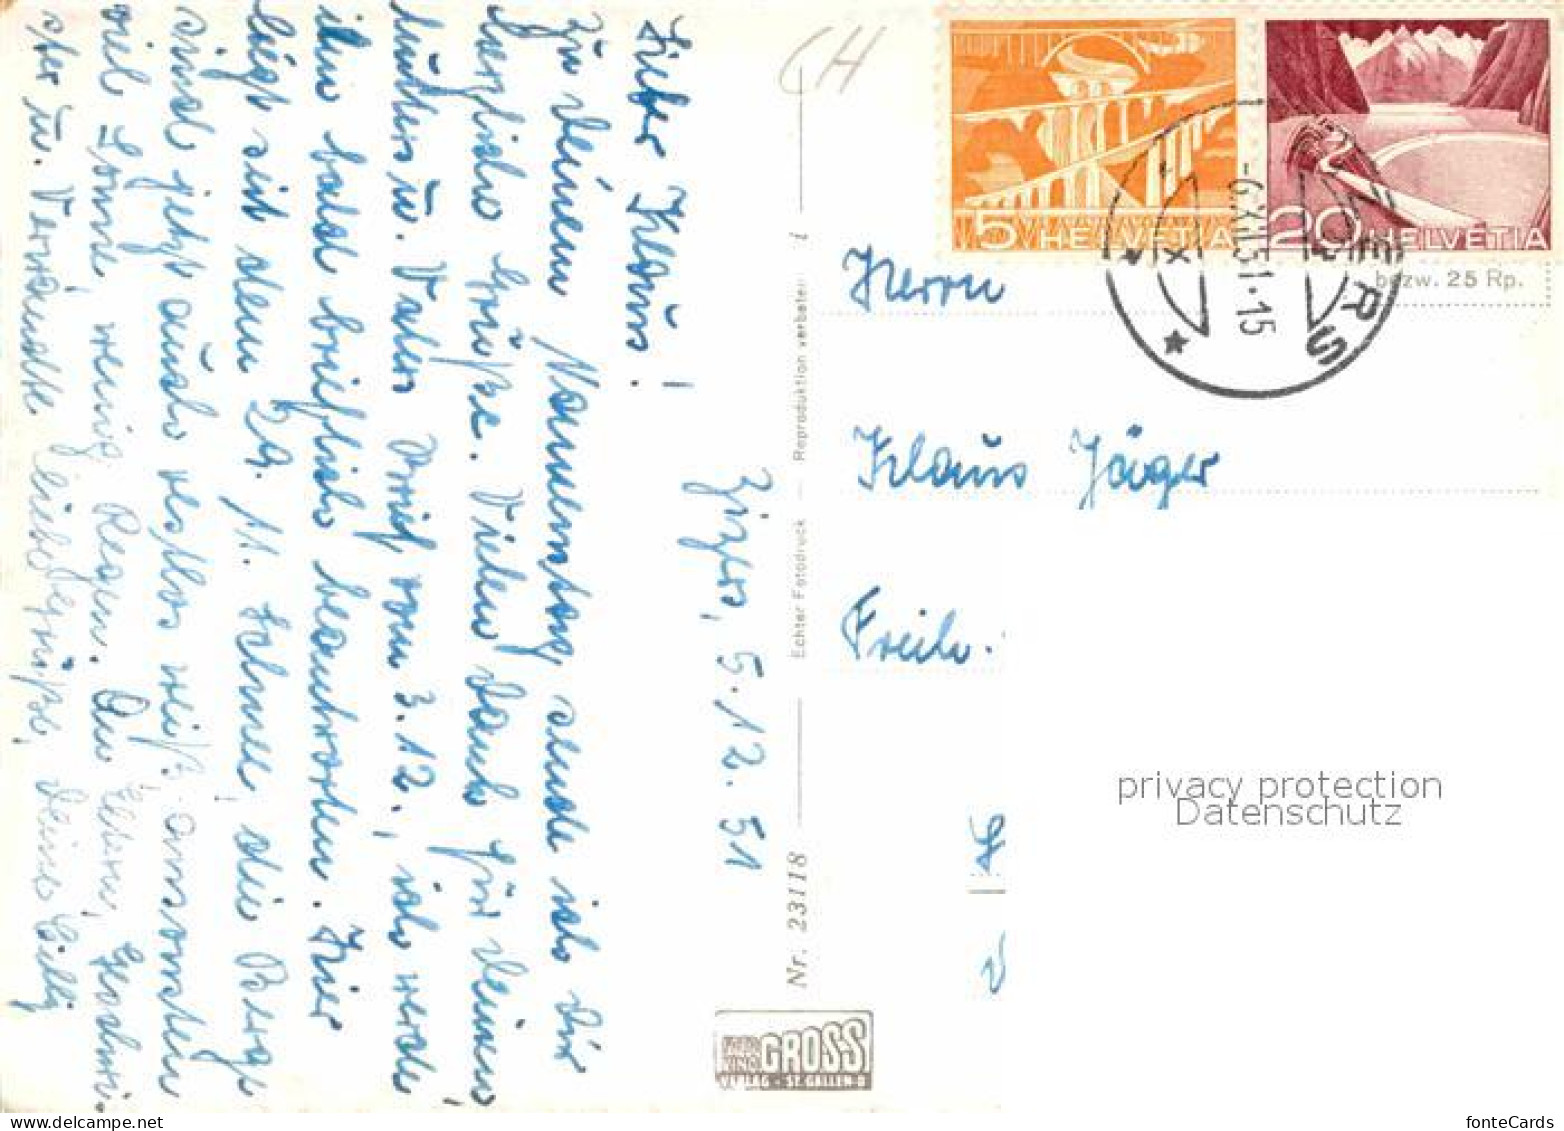 Zizers, 5.12.51
Lieber Klaus!
Zu Deinem Namenstag sende ich Dir
herzliche Grüße. Vielen Dank für Deinen
u. Vaters Brief vom 3.12., ich werde
ihn bald brieflich beantworten. Hier
liegt seit dem 29. 11. Schnee, die Berge
sind jetzt auch restlos weiß, ansonsten
viel Sonne, wenig Regen. An Eltern, Geschwi-
ster u. Verwandte liebe Grüße, Deine Cilly
Reproduktion verboten
Echter Fotodruck
Nr. 23118
FOTO KINO GROSS
VERLAG · ST. GALLEN
CH
5 HELVETIA
20 HELVETIA
-6.XII.51.15
ERS
bezw. 25 Rp.
Herrn
Klaus Jäger
Freib.
privacy protection
Datenschutz
fonteCards
www.delcampe.net